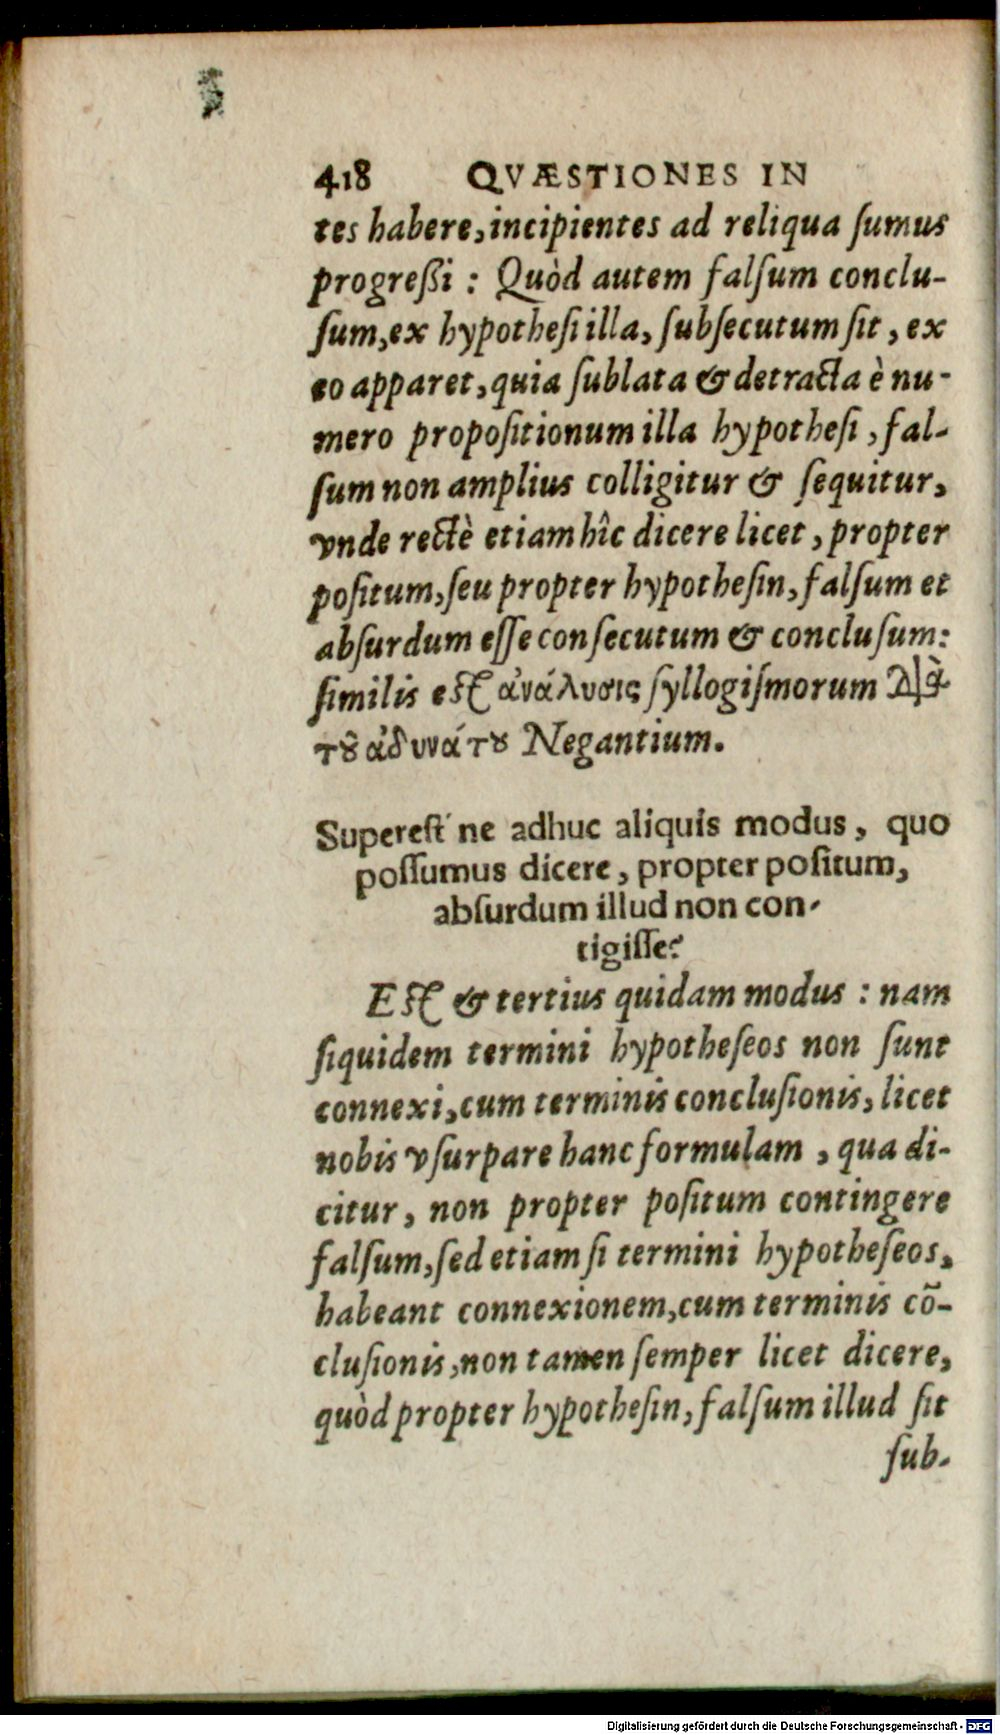 418 QVÆSTIONES IN
tes habere, incipientes ad reliqua ſumus
progreßi : Quòd autem falſum conclu-
ſum, ex hypotheſi illa, ſubſecutum ſit, ex
eo apparet, quia ſublata & detracta è nu-
mero propoſitionum illa hypotheſi, fal-
ſum non amplius colligitur & ſequitur,
vnde rectè etiam hîc dicere licet, propter
poſitum, ſeu propter hypotheſin, falſum et
abſurdum eſſe conſecutum & concluſum:
ſimilis eſt ἀνάλυσις ſyllogiſmorum διὰ
τοῦ ἀδυνάτου Negantium.
Supereſt'ne adhuc aliquis modus, quo
poſſumus dicere, propter poſitum,
abſurdum illud non con-
tigiſſe?
Eſt & tertius quidam modus : nam
ſiquidem termini hypotheſeos non ſunt
connexi, cum terminis concluſionis, licet
nobis vſurpare hanc formulam, qua di-
citur, non propter poſitum contingere
falſum, ſed etiam ſi termini hypotheſeos,
habeant connexionem, cum terminis cõ-
cluſionis, non tamen ſemper licet dicere,
quòd propter hypotheſin, falſum illud ſit
ſub-
Digitalisierung gefördert durch die Deutsche Forschungsgemeinschaft - DFG